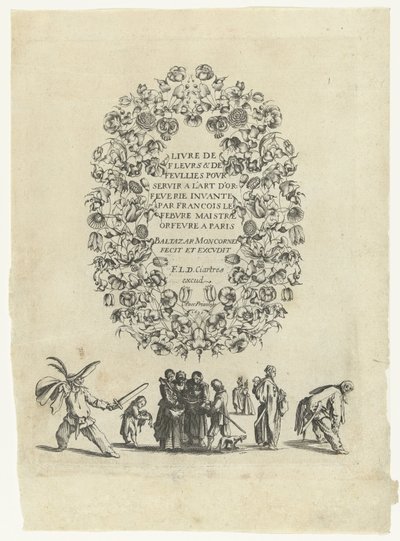 LIVRE DE
FLEVRS & DE
FEVLLIES POVR
SERVIR A L'ART D'OR
FEVERIE INVANTE
PAR FRANCOIS LE
FEBVRE MAISTRE
ORFEVRE A PARIS
BALTAZAR MONCORNET
FECIT ET EXCVDIT
F.L.D. Ciartres
excud